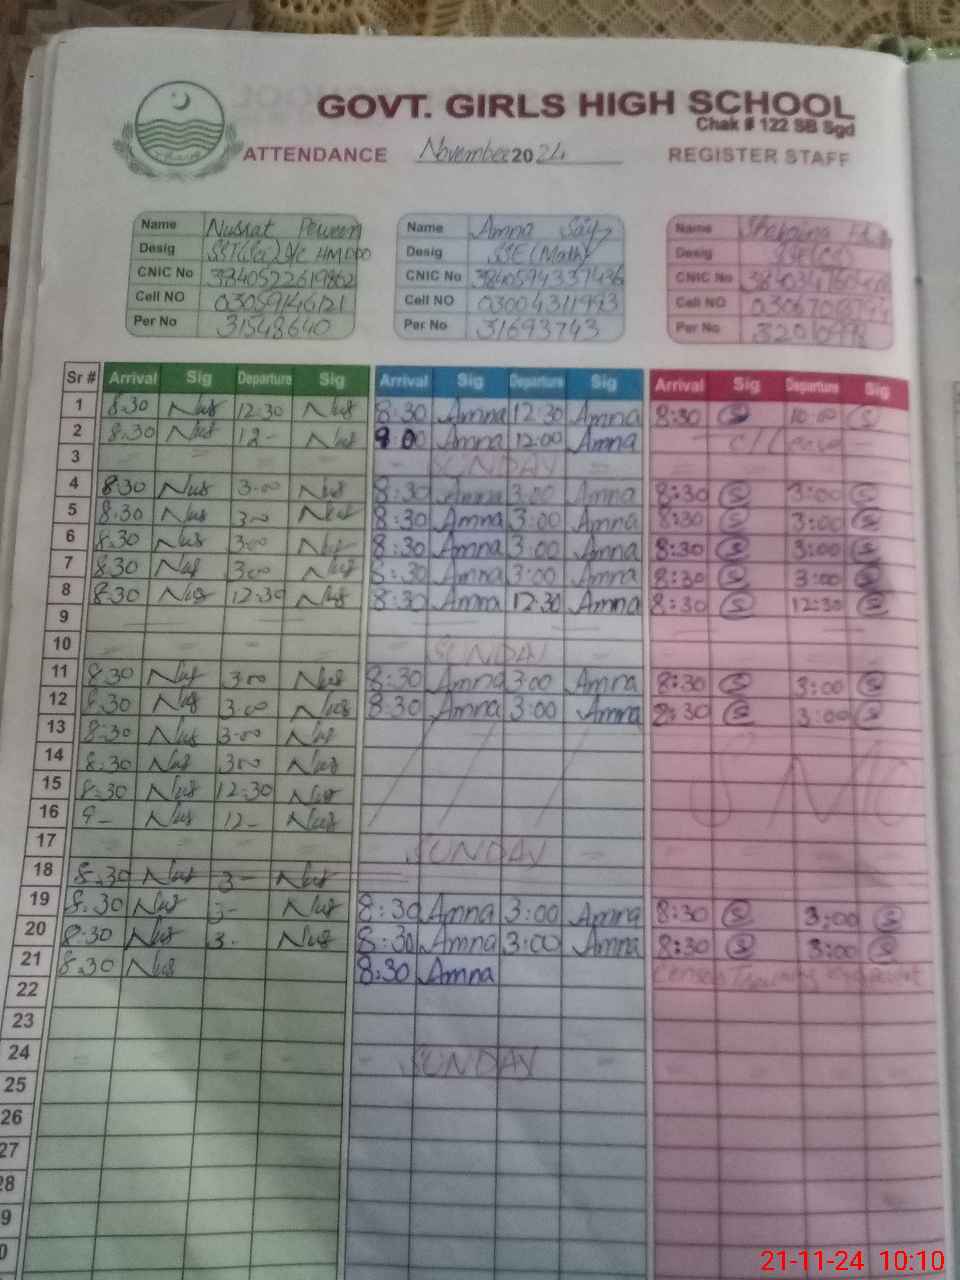 GOVT. GIRLS HIGH SCHOOL
Chak # 122 SB Sgd
ATTENDANCE November 2024 REGISTER STAFF
Name Nusrat Perveen Name Amna Name
Desig Desig SSE (Math) Desig
CNIC No 3840522619862 CNIC No 3840594337436 CNIC No
Cell NO 03059146121 Cell NO 03004311993 Cell NO
Per No 31548640 Per No 31693743 Per No
Sr # Arrival Sig Departure Sig Arrival Sig Departure Sig Arrival Sig Departure Sig
1 8:30 Nus 12:30 Nus 8:30 Amna 12:30 Amna 8:30 S 10:00 S
2 8:30 Nus 12- Nus 9:00 Amna 12:00 Amna
3 - SUNDAY -
4 8:30 Nus 3:00 Nus 8:30 Amna 3:00 Amna 8:30 S 3:00 S
5 8:30 Nus 3:00 Nus 8:30 Amna 3:00 Amna 8:30 S 3:00 S
6 8:30 Nus 3:00 Nus 8:30 Amna 3:00 Amna 8:30 S 3:00 S
7 8:30 Nus 3:00 Nus 8:30 Amna 3:00 Amna 8:30 S 3:00 S
8 8:30 Nus 12:30 Nus 8:30 Amna 12:30 Amna 8:30 S 12:30 S
9
10 - SUNDAY -
11 8:30 Nus 3:00 Nus 8:30 Amna 3:00 Amna 8:30 S 3:00 S
12 8:30 Nus 3:00 Nus 8:30 Amna 3:00 Amna 8:30 S 3:00 S
13 8:30 Nus 3:00 Nus
14 8:30 Nus 3:00 Nus
15 8:30 Nus 12:30 Nus
16 9- Nus 12- Nus
17 SUNDAY -
18 8:30 Nus 3- Nus
19 8:30 Nus 3- Nus 8:30 Amna 3:00 Amna 8:30 S 3:00 S
20 8:30 Nus 3- Nus 8:30 Amna 3:00 Amna 8:30 S 3:00 S
21 8:30 Nus 8:30 Amna Census Training
22
23
24 - SUNDAY -
25
26
27
28
9
0
21-11-24 10:10